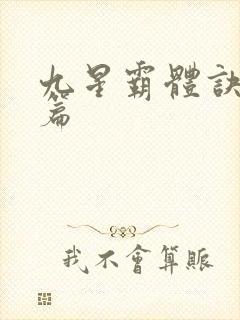 九星霸體訣
篇
我不會算賬